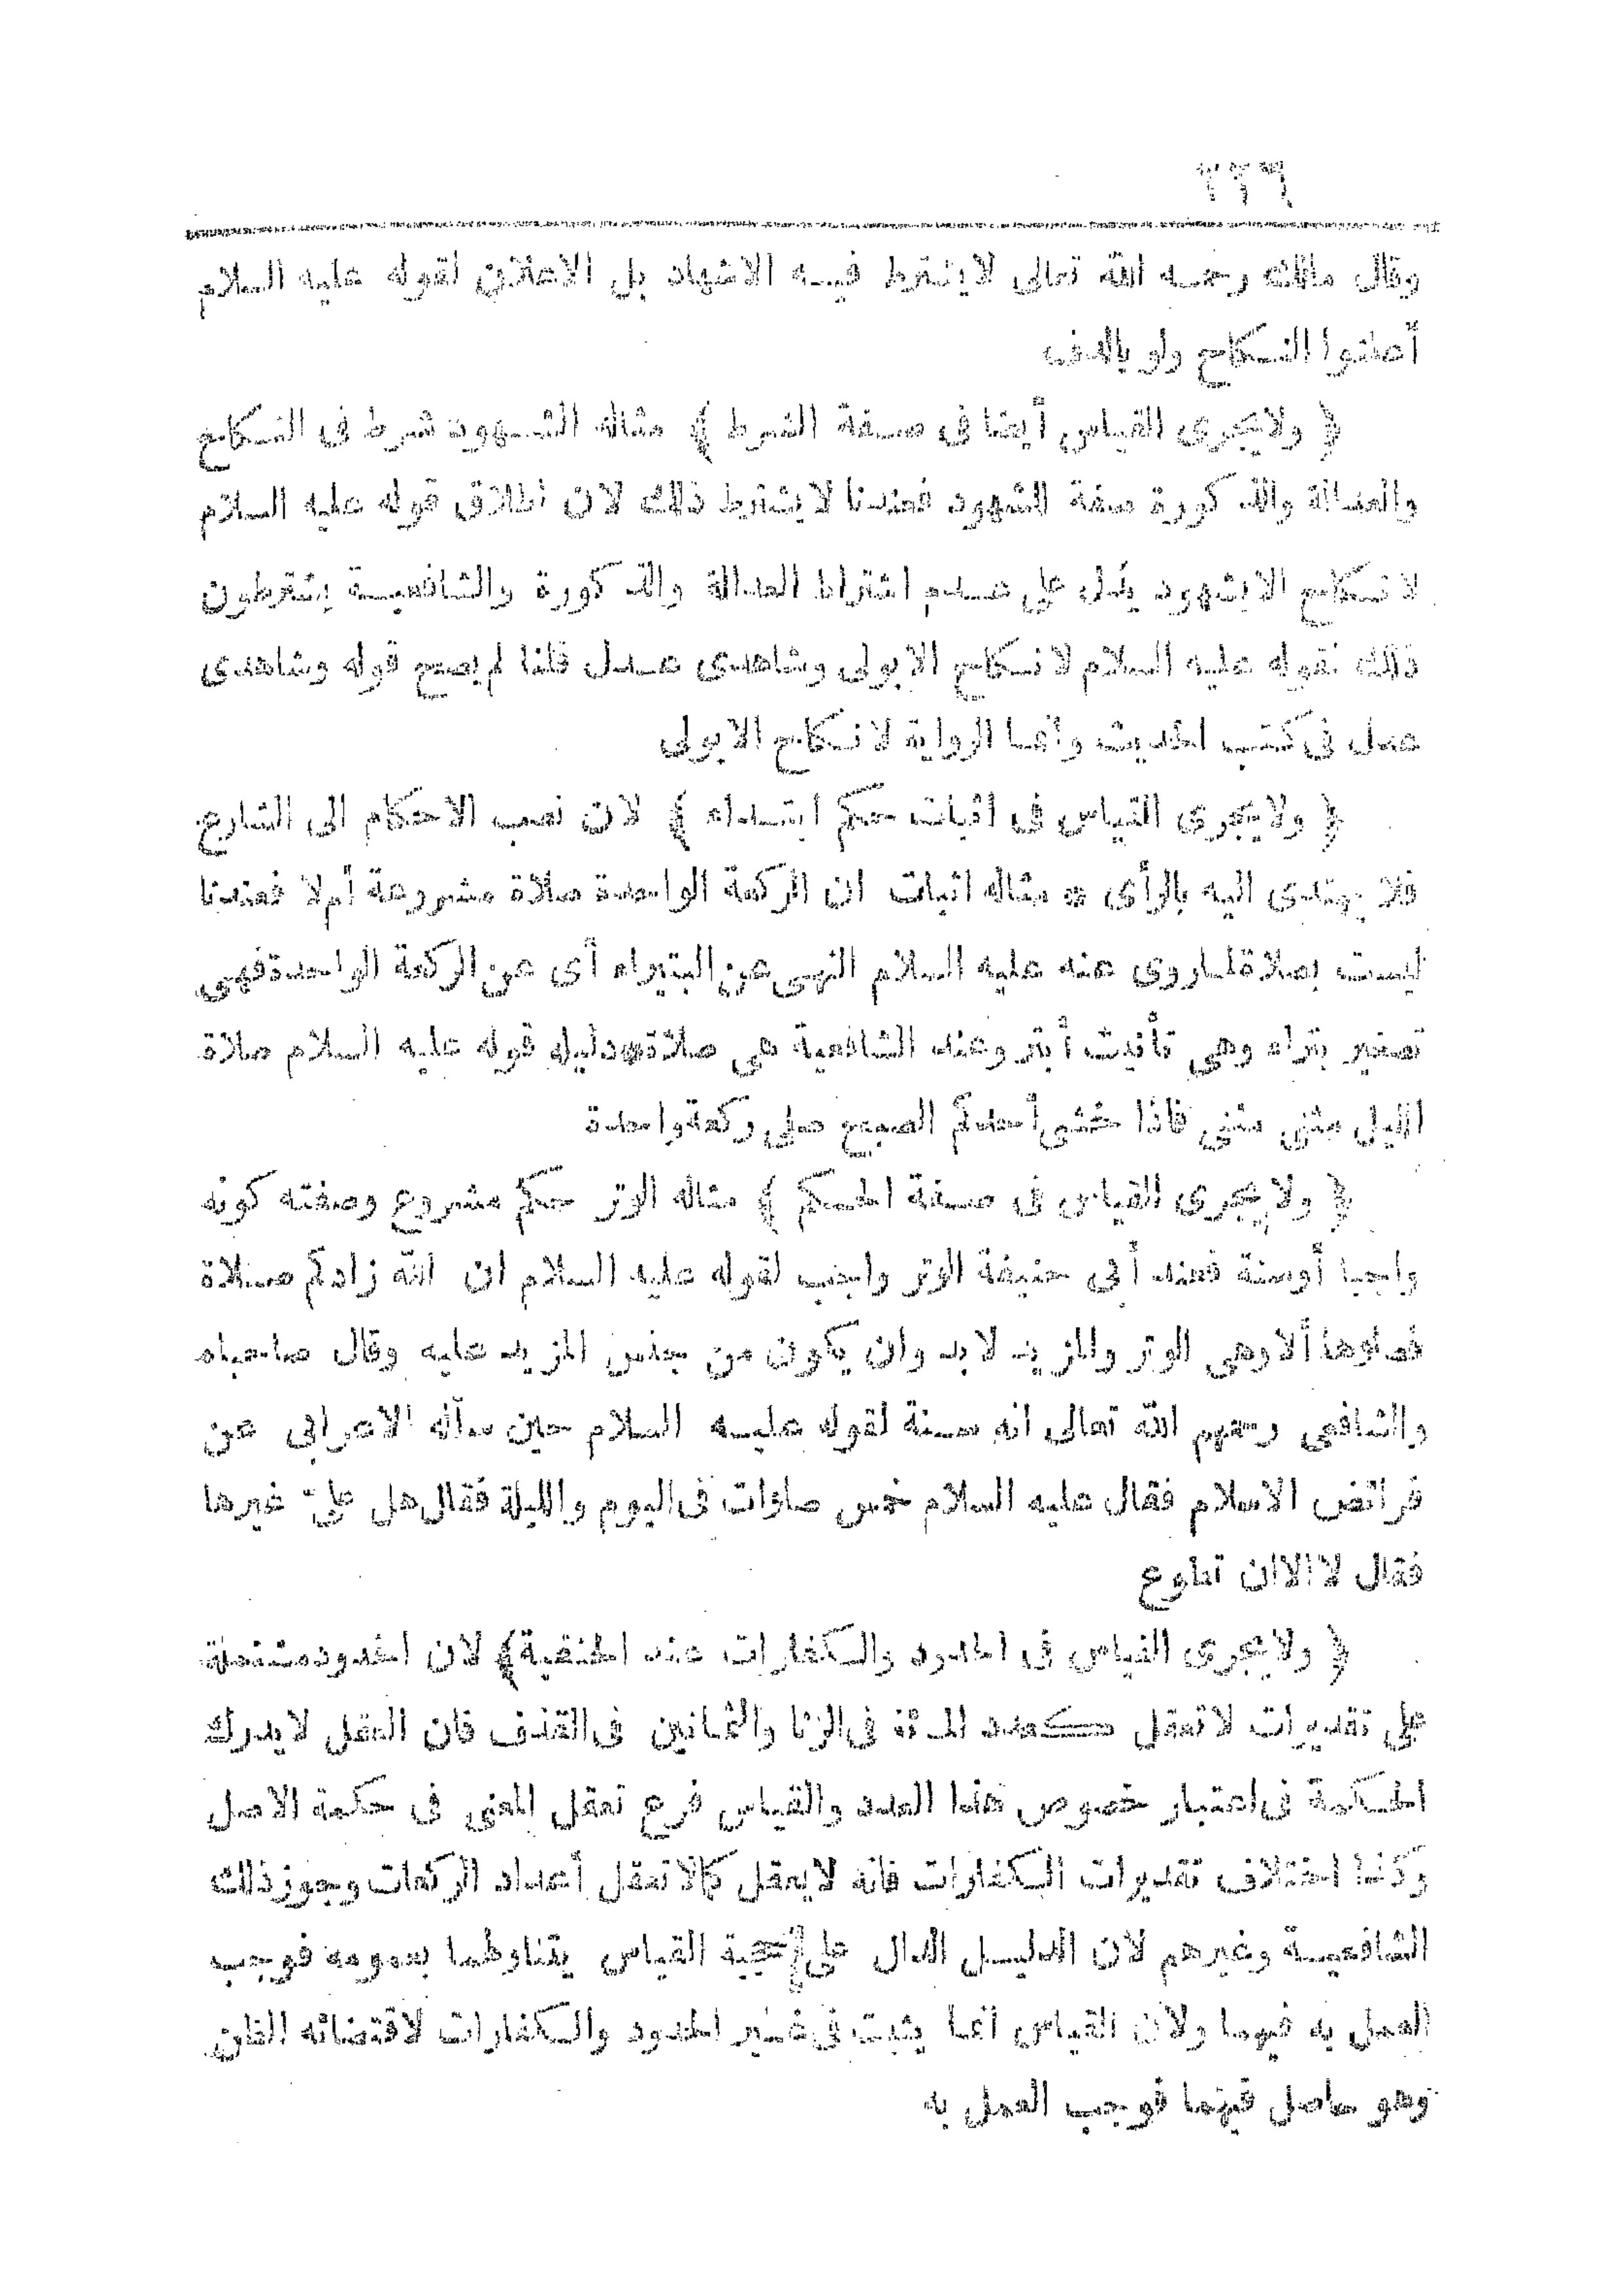 ٢٢٦
وقال مالك رحمه الله تعالى لا يشترط فيه الاشهاد بل الاعلان لقوله عليه السلام
أعلنوا النكاح ولو بالدف
﴿ ولا يجرى القياس أيضا فى صفة الشرط ﴾ مثاله الشهود شرط فى النكاح
والعدالة والذكورة صفة الشهود فعندنا لا يشترط ذلك لان اطلاق قوله عليه السلام
لا نكاح الا بشهود يدل على عدم اشتراط العدالة والذكورة والشافعية يشترطون
ذلك لقوله عليه السلام لا نكاح الا بولى وشاهدى عدل قلنا لم يصح قوله وشاهدى
عدل فى كتب الحديث وانما الرواية لا نكاح الا بولى
﴿ ولا يجرى القياس فى اثبات حكم ابتداء ﴾ لان نصب الاحكام الى الشارع
فلا يهتدى اليه بالرأى * مثاله اثبات ان الركعة الواحدة صلاة مشروعة أم لا فعندنا
ليست بصلاة لما روى عنه عليه السلام النهى عن البتيراء أى عن الركعة الواحدة فهى
تصغير بتراء وهى تأنيث أبتر وعند الشافعية هى صلاة * دليله قوله عليه السلام صلاة
الليل مثنى مثنى فاذا خشى أحدكم الصبح صلى ركعة واحدة
﴿ ولا يجرى القياس فى صفة الحكم ﴾ مثاله الوتر حكم مشروع وصفته كونه
واجبا أوسنة فعند أبى حنيفة الوتر واجب لقوله عليه السلام ان الله زادكم صلاة
فصلوها ألا وهى الوتر والمزيد لا بد وان يكون من جنس المزيد عليه وقال صاحباه
والشافعى رحمهم الله تعالى انه سنة لقوله عليه السلام حين سأله الاعرابى عن
فرائض الاسلام فقال عليه السلام خمس صلوات فى اليوم والليلة فقال هل علىّ غيرها
فقال لا الا ان تطوع
﴿ ولا يجرى القياس فى الحدود والكفارات عند الحنفية ﴾ لان الحدود مشتملة
على تقديرات لا تعقل كعدد المائة فى الزنا والثمانين فى القذف فان العقل لا يدرك
الحكمة فى اعتبار خصوص هذا العدد والقياس فرع تعقل المعنى فى حكمة الاصل
وكذا اختلاف تقديرات الكفارات فانه لا يعقل كما لا تعقل أعداد الركعات وجوز ذلك
الشافعية وغيرهم لان الدليل الدال على حجية القياس يتناولهما بعمومه فوجب
العمل به فيهما ولان القياس انما يثبت فى غير الحدود والكفارات لاقتضائه الظن
وهو حاصل فيهما فوجب العمل به